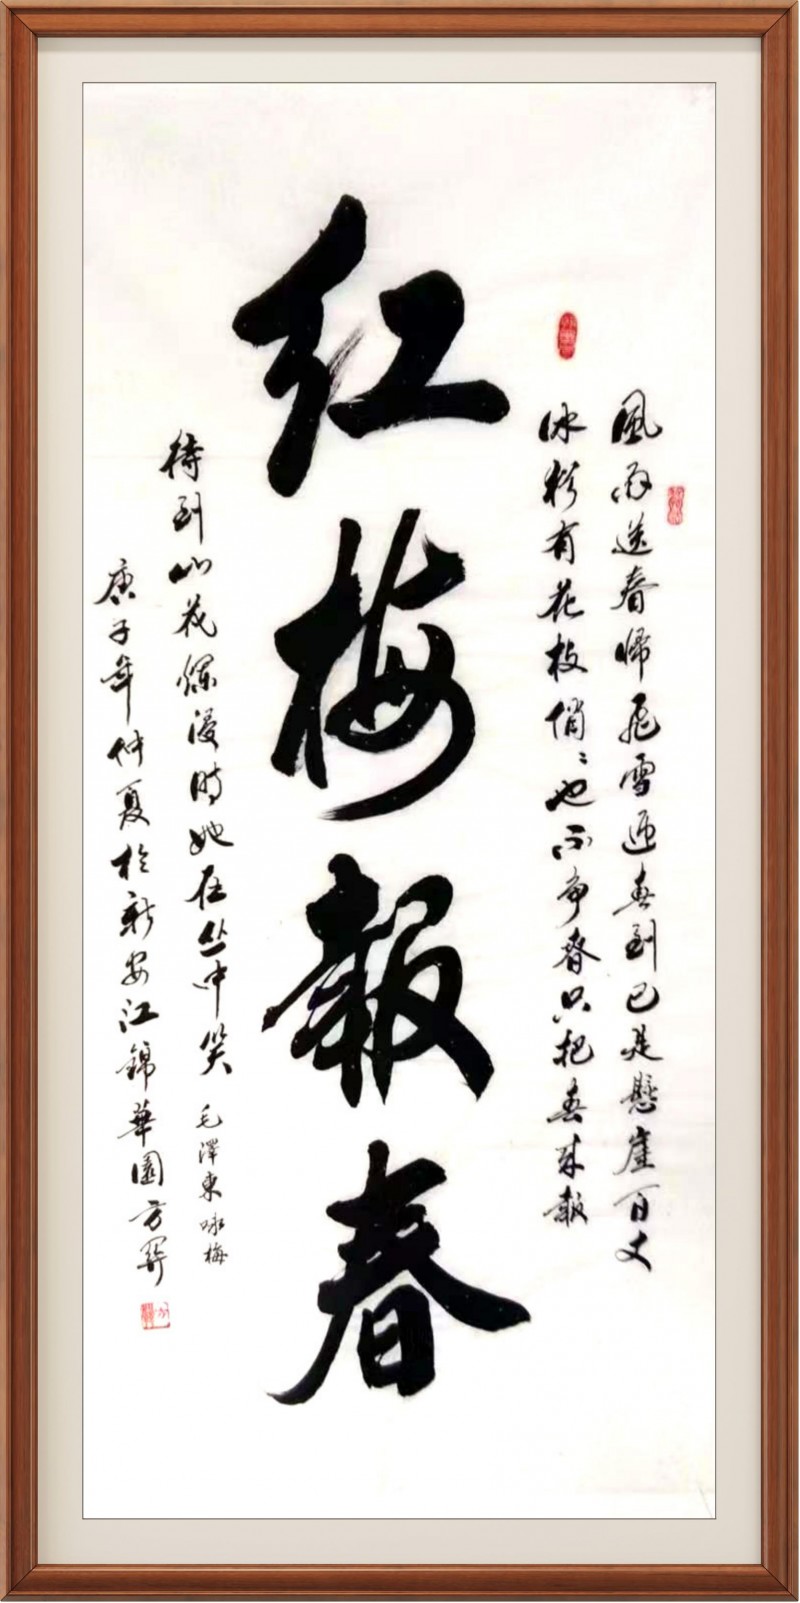 風雨送春帰飛雪迎春到已是懸崖百丈
冰猶有花枝俏〻也不争春只把春来報
红梅報春
待到山花爛漫时她在丛中笑 毛澤東咏梅
庚子年仲夏於新安江錦華園方